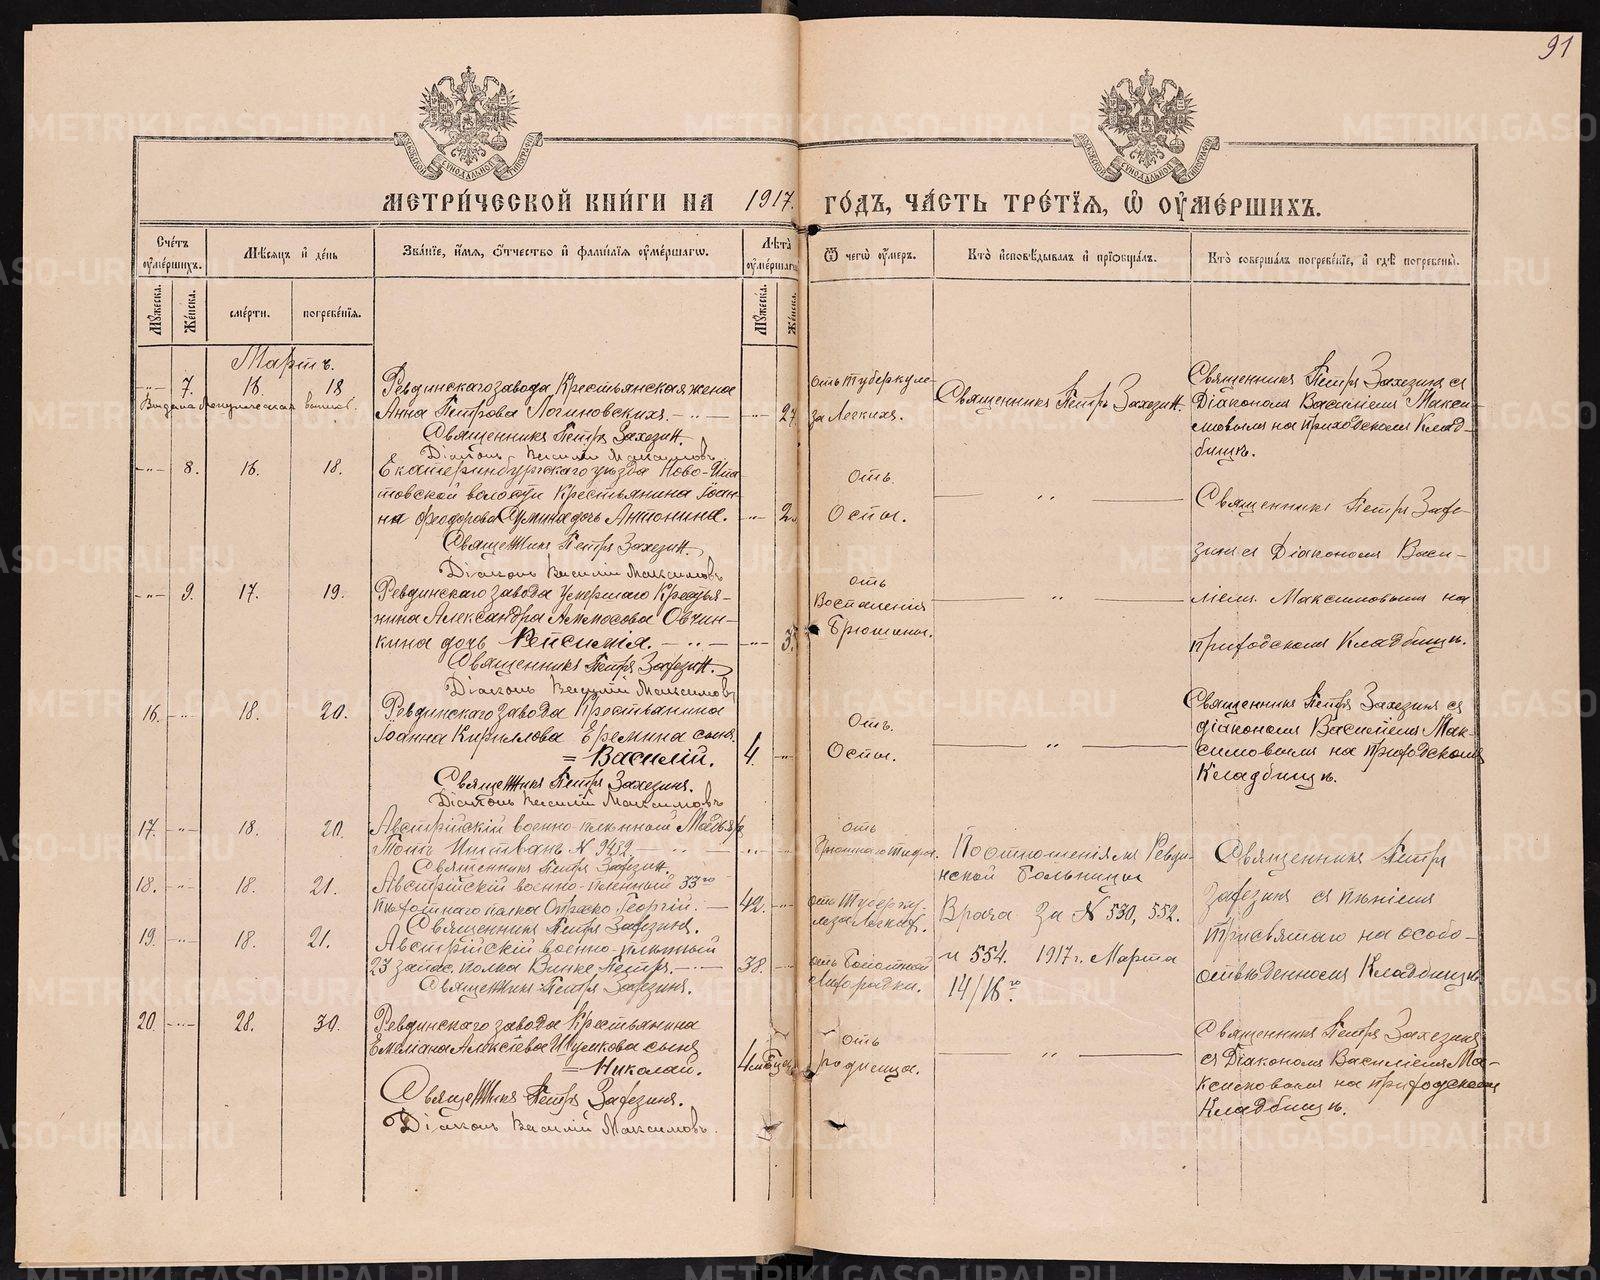 91
МЕТРИ́ЧЕСКОЙ КНИ́ГИ НА 1917. ГО́ДЪ, ЧА́СТЬ ТРЕ́ТЇЯ, Ѿ ОУМЕ́РШИХЪ.
Сче́тъ оуме́ршихъ.
Мѣ́сяцъ и҆ де́нь
Зва́нїе, и҆́мя, ѻ҆́тчество и҆ фами́лїя оуме́ршагѡ.
Лѣта̀ оуме́ршагѡ
Ѿ чегѡ̀ оу́меръ.
Кто̀ и҆сповѣ́дывалъ и҆ прїѡбща́лъ.
Кто̀ соверша́лъ погребе́нїе, и҆ гдѣ̀ погребены̀.
Му́жеска.
Же́нска.
сме́рти.
погребе́нїя.
Му́жеска.
Же́нска.
Мартъ.
7. 16 18 Ревдинскаго завода Крестьянская жена
Анна Петрова Логиновскихъ. 27
Священникъ Петръ Захезин.
Діаконъ Василій Максимовъ
отъ туберкуле-
за Легкихъ.
Священникъ Петръ Захезин.
Священникъ Петръ Захезинъ съ
Діакономъ Василіемъ Макси-
мовымъ на приходскомъ Клад-
бищѣ.
8. 16. 18. Екатеринбургскаго уѣзда Ново-Ипа-
товской волости Крестьянина Іоан-
на Феодорова дочь Антонина. 2.
Священникъ Петръ Захезин.
Діаконъ Василій Максимовъ
отъ
Оспы.
"
Священникъ Петръ Захе-
зинъ съ Діакономъ Васи-
ліемъ Максимовымъ на
приходскомъ Кладбищѣ.
9. 17. 19. Ревдинскаго завода умершаго Крестья-
нина Александра Аммосова Овчин-
кина дочь Репсимія. 3.
Священникъ Петръ Захезин.
Діаконъ Василій Максимовъ
отъ
Воспаленія
брюшины.
"
16. 18. 20. Ревдинскаго завода Крестьянина
Іоанна Кириллова Еремина сынъ
= Василій. 4.
Священникъ Петръ Захезинъ.
Діаконъ Василій Максимовъ
отъ
Оспы.
"
Священникъ Петръ Захезинъ съ
діакономъ Василіемъ Мак-
симовымъ на приходскомъ
Кладбищѣ.
17. 18. 20. Австрійскій военно-плѣнный Мадьяръ
Тотъ Иштванъ N 9482
Священникъ Петръ Захезин.
отъ
брюшного тифа.
По отношеніямъ Ревди-
нской Больницы
Врача за N 530, 552.
и 554. 1917 г. Марта
14/16го.
Священникъ Петръ
Захезинъ съ пѣніемъ
Трисвятаго на особо-
отвѣденномъ Кладбищѣ
18. 18. 21. Австрійскій военно-плѣнный 33го
пѣхотнаго полка Георгій. 42.
Священникъ Петръ Захезинъ.
отъ Туберку-
леза Легкихъ.
19. 18. 21. Австрійскій военно-плѣнный
23 запас. полка Винке Петръ. 38.
Священникъ Петръ Захезинъ.
отъ болотной
Лихорадки.
20. 28. 30. Ревдинскаго завода Крестьянина
Емеліана Алексѣева Шумкова сынъ
= Николай. 4 мѣсяц.
Священникъ Петръ Захезинъ.
Діаконъ Василій Максимовъ.
отъ
родимца.
"
Священникъ Петръ Захезинъ
съ Діакономъ Василіемъ Ма-
ксимовымъ на приходскомъ
Кладбищѣ.
METRIKI.GASO-URAL.RU